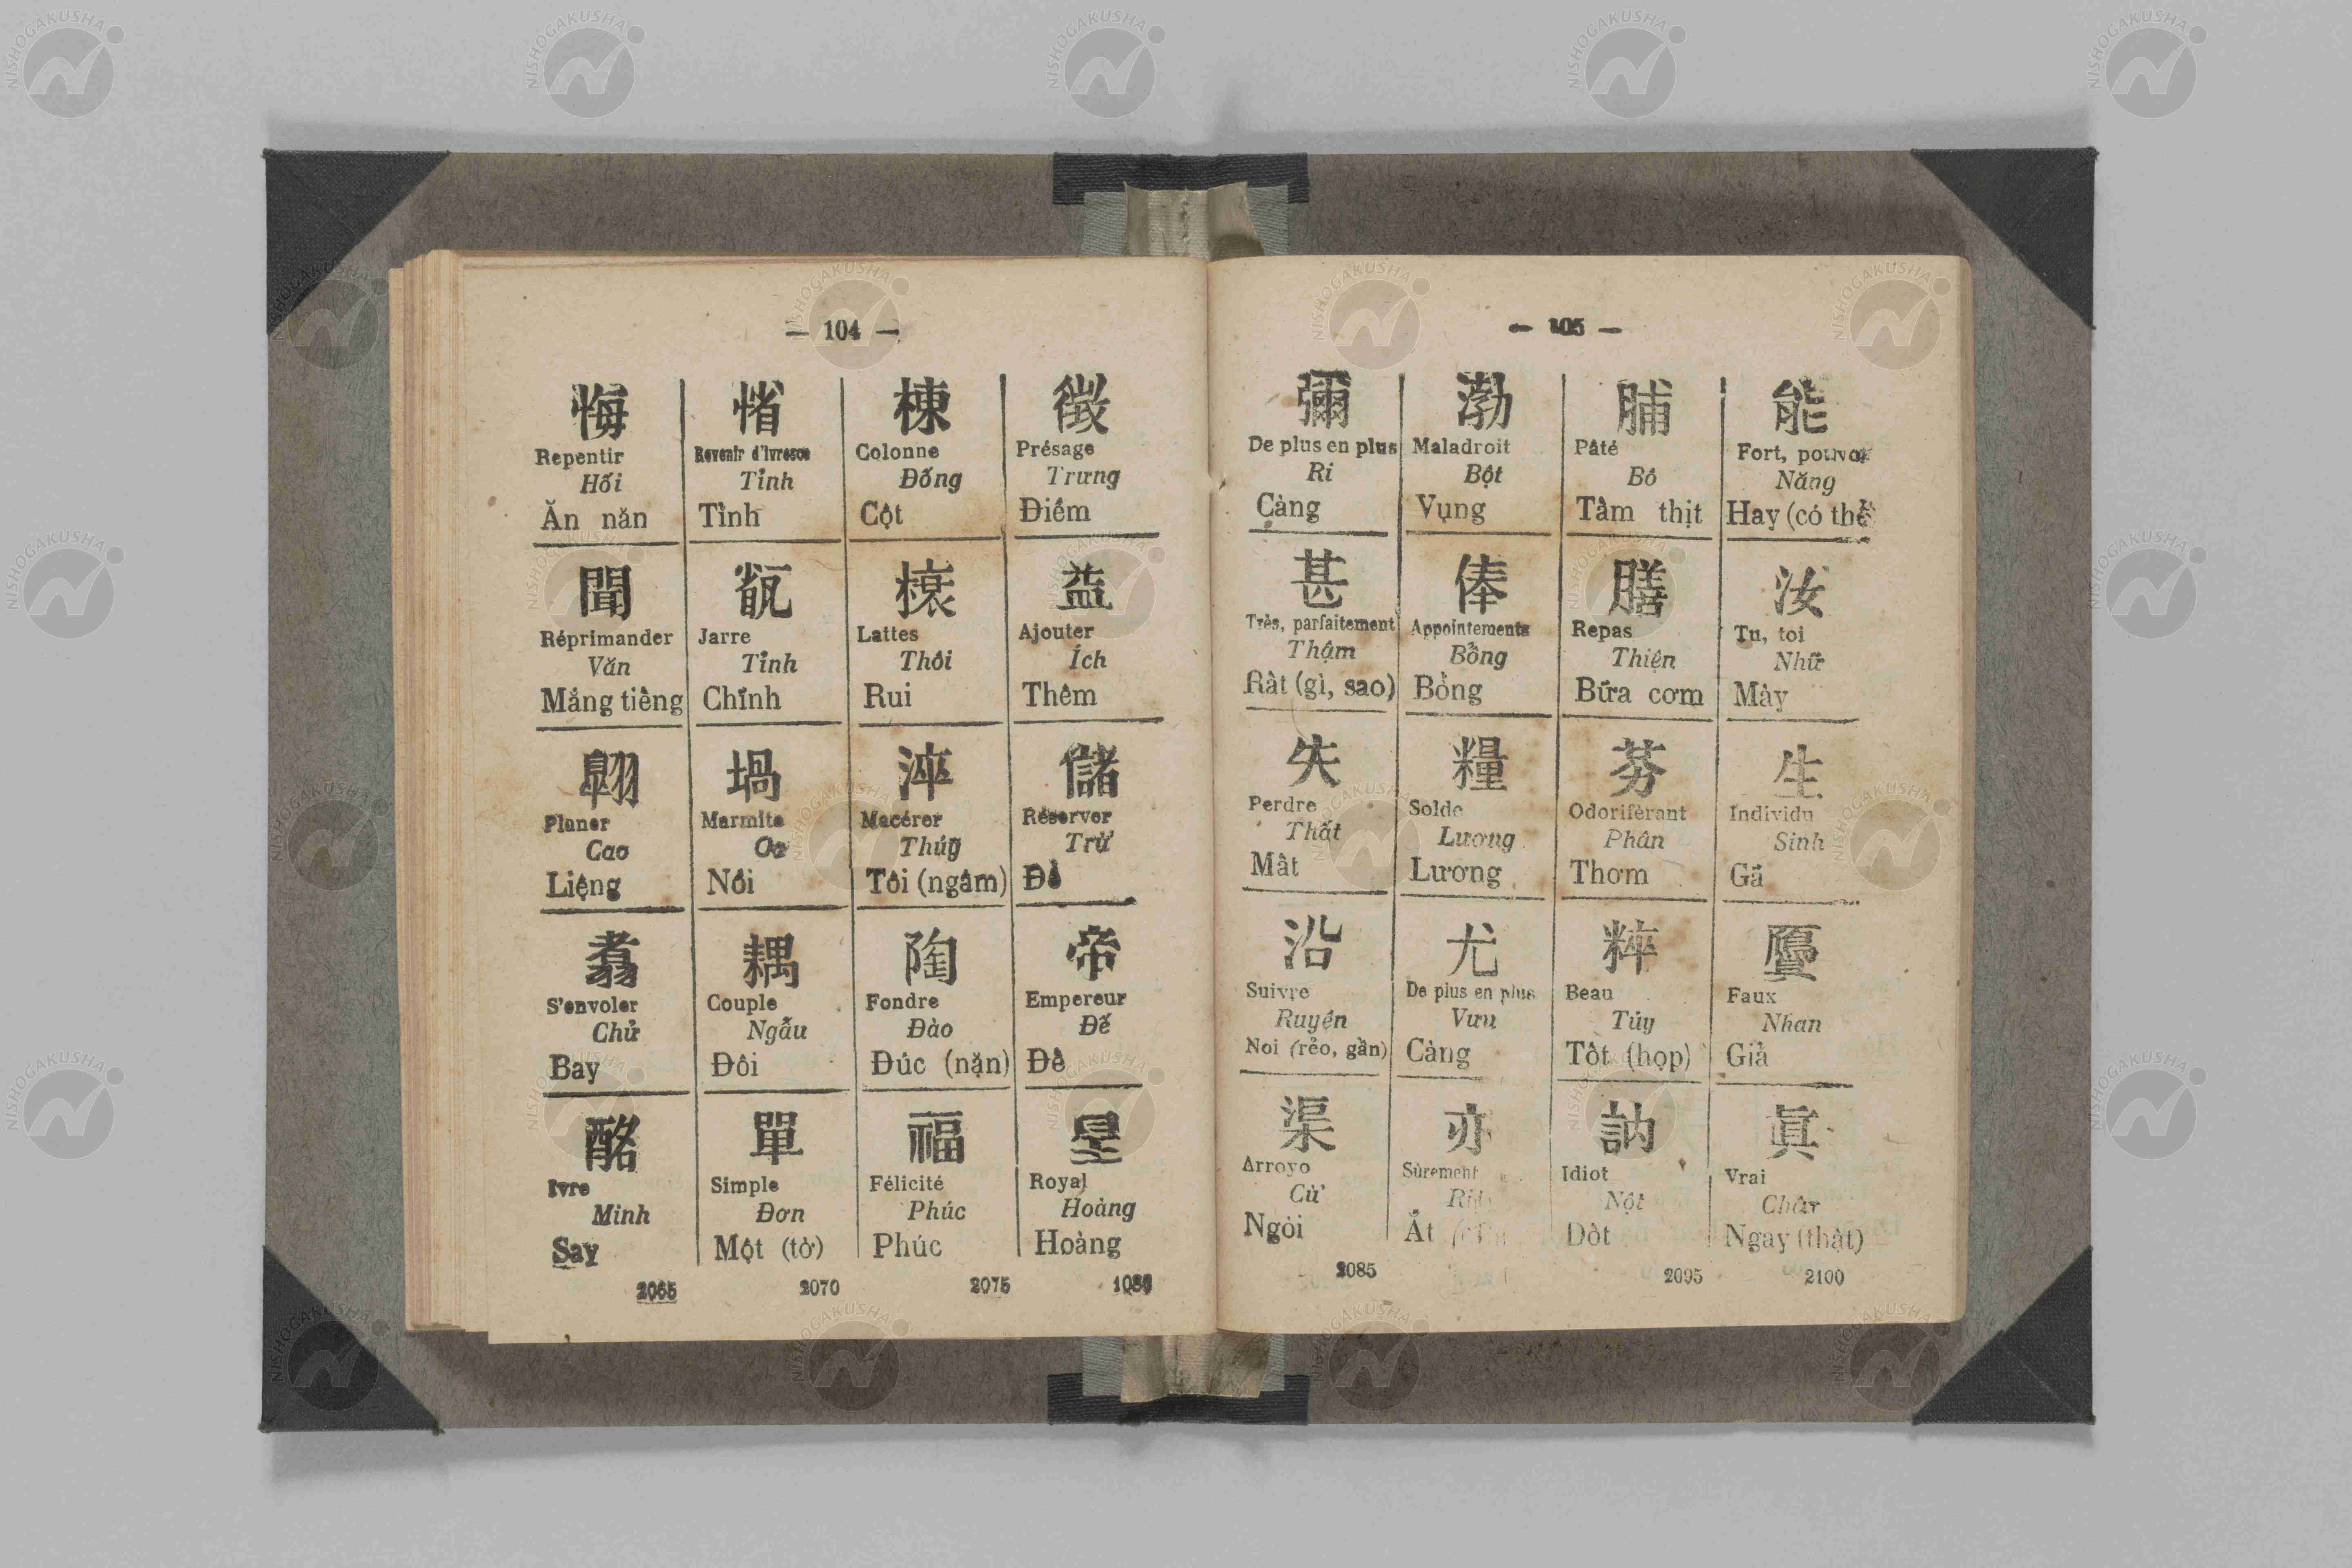 — 104 —
悔
Repentir
Hối
Ăn năn
聞
Réprimander
Văn
Mắng tiếng
翺
Planer
Cao
Liệng
翥
S'envoler
Chử
Bay
酩
Ivre
Minh
Say
2065
惰
Revenir d'ivresse
Tỉnh
Tỉnh
Jarre
Tỉnh
Chĩnh
堝
Marmite
Oa
Nồi
耦
Couple
Ngẫu
Đôi
單
Simple
Đơn
Một (tờ)
2070
棟
Colonne
Đống
Cột
榱
Lattes
Thôi
Rui
淬
Macérer
Thúy
Tôi (ngâm)
陶
Fondre
Đào
Đúc (nặn)
福
Félicité
Phúc
Phúc
2075
徵
Présage
Trưng
Điềm
益
Ajouter
Ích
Thêm
儲
Réserver
Trừ
Để
帝
Empereur
Đế
Đế
Royal
Hoàng
Hoàng
— 105 —
彌
De plus en plus
Ri
Càng
甚
Très, parfaitement
Thậm
Rất (gì, sao)
失
Perdre
Thất
Mất
沿
Suivre
Ruyên
Noi (rẻo, gần)
渠
Arroyo
Cừ
Ngòi
2085
渤
Maladroit
Bột
Vụng
俸
Appointements
Bổng
Bổng
糧
Solde
Lương
Lương
尤
De plus en plus
Vưu
Càng
亦
Sûrement
Ắt
脯
Pâté
Bô
Tấm thịt
膳
Repas
Thiện
Bữa cơm
芬
Odoriférant
Phân
Thơm
粹
Beau
Túy
Tốt (họp)
訥
Idiot
Nột
Dốt
2095
能
Fort,
Năng
Hay (có thể
汝
Tu, toi
Nhữ
Mày
生
Individu
Sinh
Gã
贋
Faux
Nhan
Giả
眞
Vrai
Ngay (thật)
2100
NISHOGAKUSHA